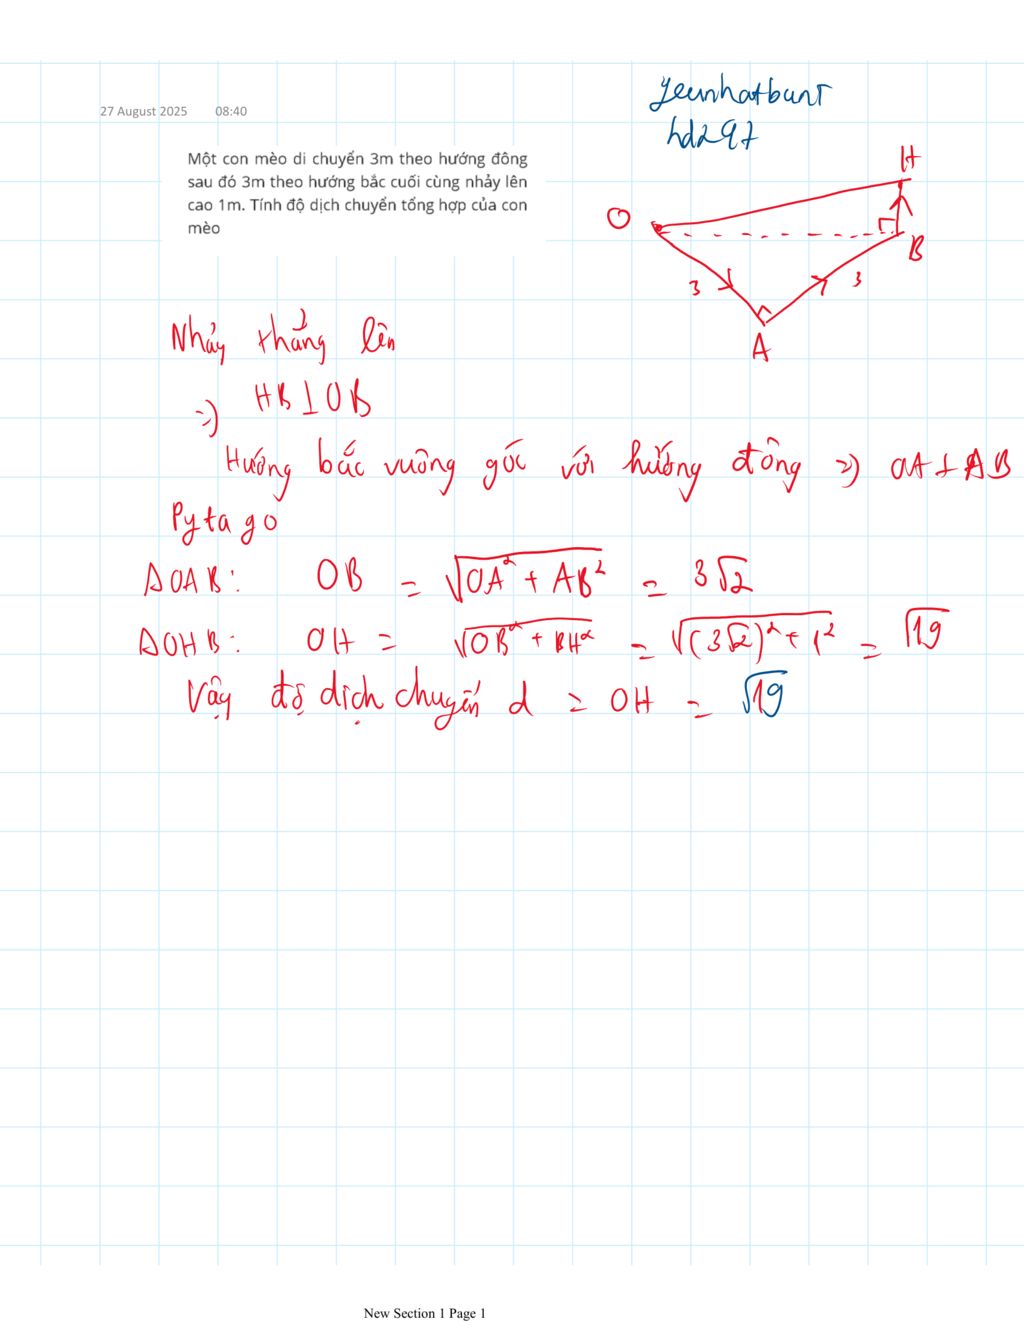 yeunhatbunt
hd297
27 August 2025 08:40
Một con mèo di chuyển 3m theo hướng đông
sau đó 3m theo hướng bắc cuối cùng nhảy lên
cao 1m. Tính độ dịch chuyển tổng hợp của con
mèo
H
O
B
3 3
A
Nhảy thẳng lên
=> HB ⊥ OB
Hướng bắc vuông góc với hướng đông => OA ⊥ AB
Pytago
ΔOAB: OB = √(OA² + AB²) = 3√2
ΔOHB: OH = √(OB² + BH²) = √((3√2)² + 1²) = √19
Vậy độ dịch chuyển d = OH = √19
New Section 1 Page 1